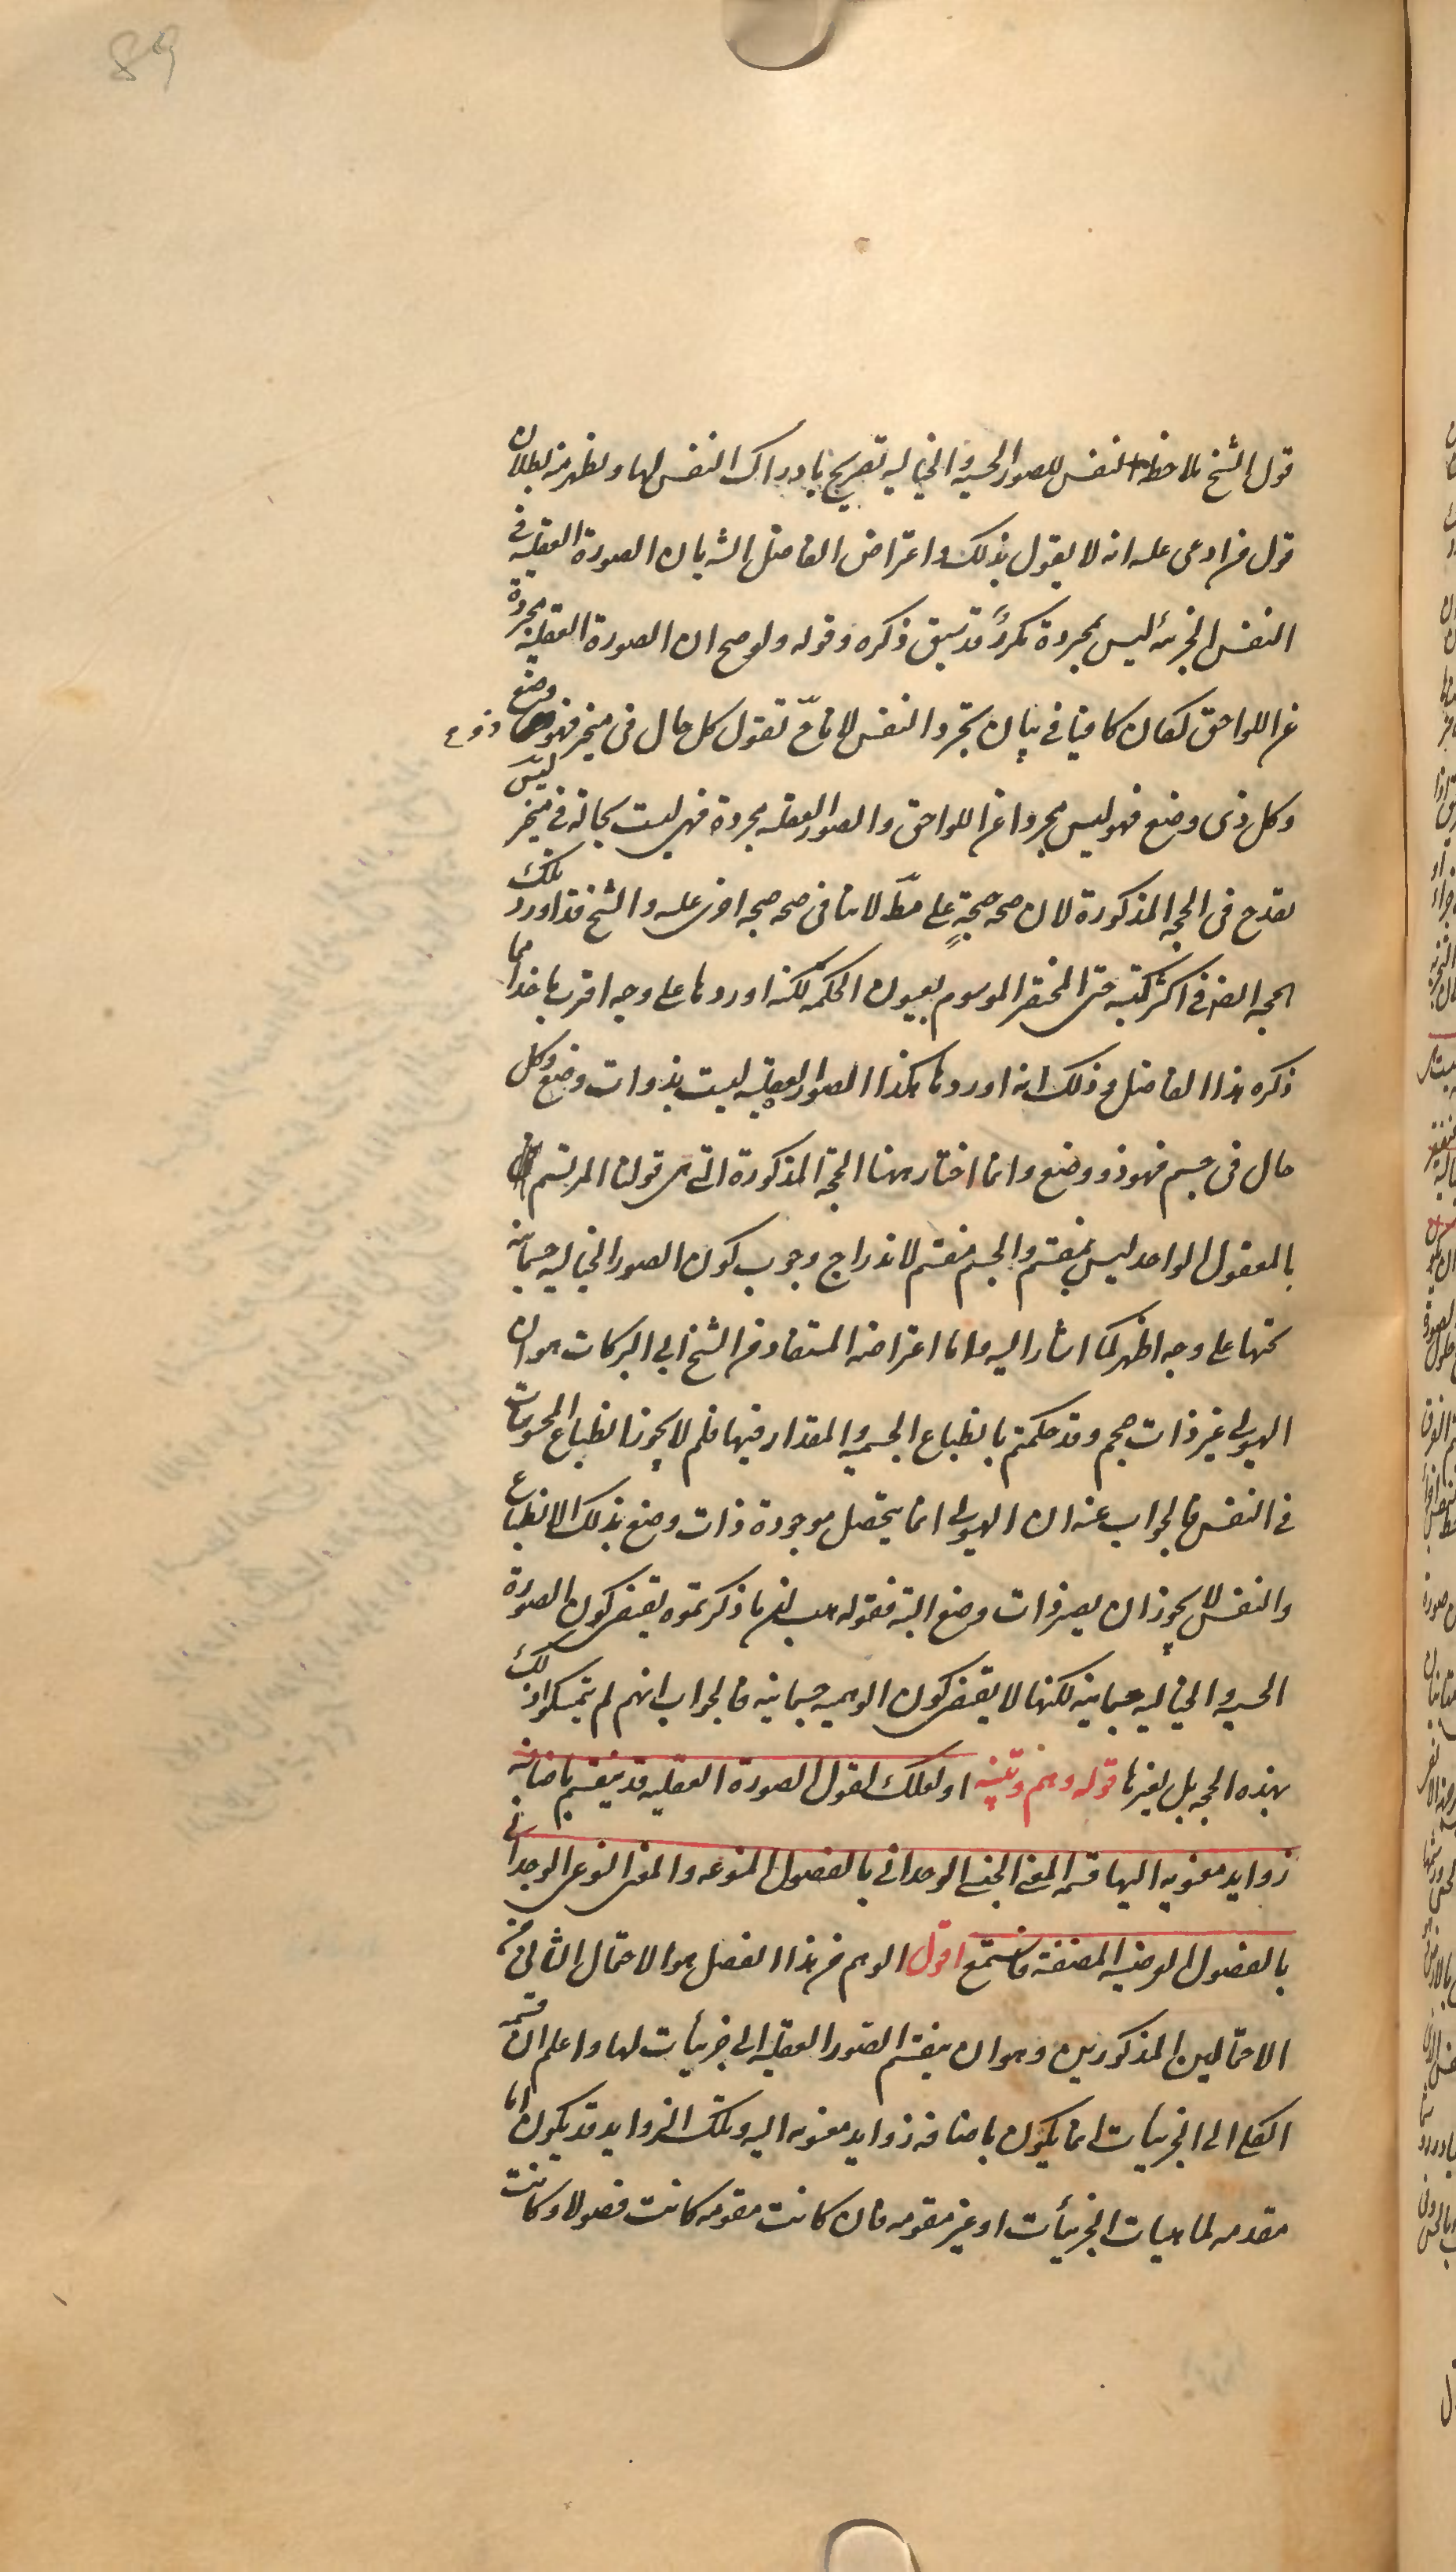 89
قول الشيخ بملاحظة النفس للصور الحسية والخيالية تصريح بادراك النفس لها ويظهر منه بطلان
قول من ادعى عليه انه لا يقول بذلك واعتراض الفاضل الش بان الصورة العقلية في
النفس الجزئية ليس بمجردة مكررً قد سبق ذكره وقوله ولو صح ان الصورة العقلية مجردة
عن اللواحق لكفان كافيا في بيان تجرد النفس لانا ح نقول كل حال في متحيز فهو ذو وضع
وكل ذى وضع فهو ليس مجردا عن اللواحق والصور العقلية مجردة فهى ليست بحالة في متحيز ليس
بقدح فى الحجة المذكورة لان صحة حجةٍ على مط لا ينافى صحة حجة اخرى عليه والشيخ قد اورد تلك
الحجة ايضا في اكثر كتبه حتى المختصر الموسوم بعيون الحكمة لكنه اوردها على وجه اقرب ماخذا مما
ذكره هذا الفاضل وذلك انه اوردها هكذا الصور العقلية ليست بذوات وضع وكل
حال فى جسم فهو ذو وضع وانما اختار ههنا الحجة المذكورة التى هى قولنا المرتسم
بالمعقول الواحد ليس بمنقسم والجسم منقسم لاندراج وجوب كون الصور الخيالية جسمانية
تحتها على وجه اظهر كما اشار اليه واما اعتراضه المستفاد من الشيخ ابى البركات هو ان
الهيولى غير ذات حجم وقد حكمتم بانطباع الجسمية والمقدار فيها فلم لا يجوز انطباع المحسوسات
في النفس فالجواب عنه ان الهيولى انما يتحصل موجودة ذات وضع بذلك الانطباع
والنفس لا يجوز ان يصير ذات وضع البتة فقوله هب ان ما ذكرتموه يقتضى كون الصورة
الحسية والخيالية جسمانية لكنها لا يقتضى كون الوهمية جسمانية فالجواب انهم لم يتمسكوا فى ذلك
بهذه الحجة بل بغيرها قوله وهم وتنبيه او لعلك تقول الصورة العقلية قد ينقسم باضافة
زوايد معنوية اليها قسمة المعنى الجنسى الوحدانى بالفصول المنوعة والمعنى النوعى الوحدانى
بالفصول العرضية المصنفة فاستمع اقول الوهم من هذا الفصل هو الاحتمال الثانى من
الاحتمالين المذكورين وهو ان ينقسم الصور العقلية الى جزئيات لها واعلم ان قسمة
الكلى الى الجزئيات انما يكون باضافة زوايد معنوية اليه وتلك الزوايد قد يكون اما
مقدمه لماهيات الجزئيات او غير مقومه فان كانت مقومه كانت فصولا وكانت